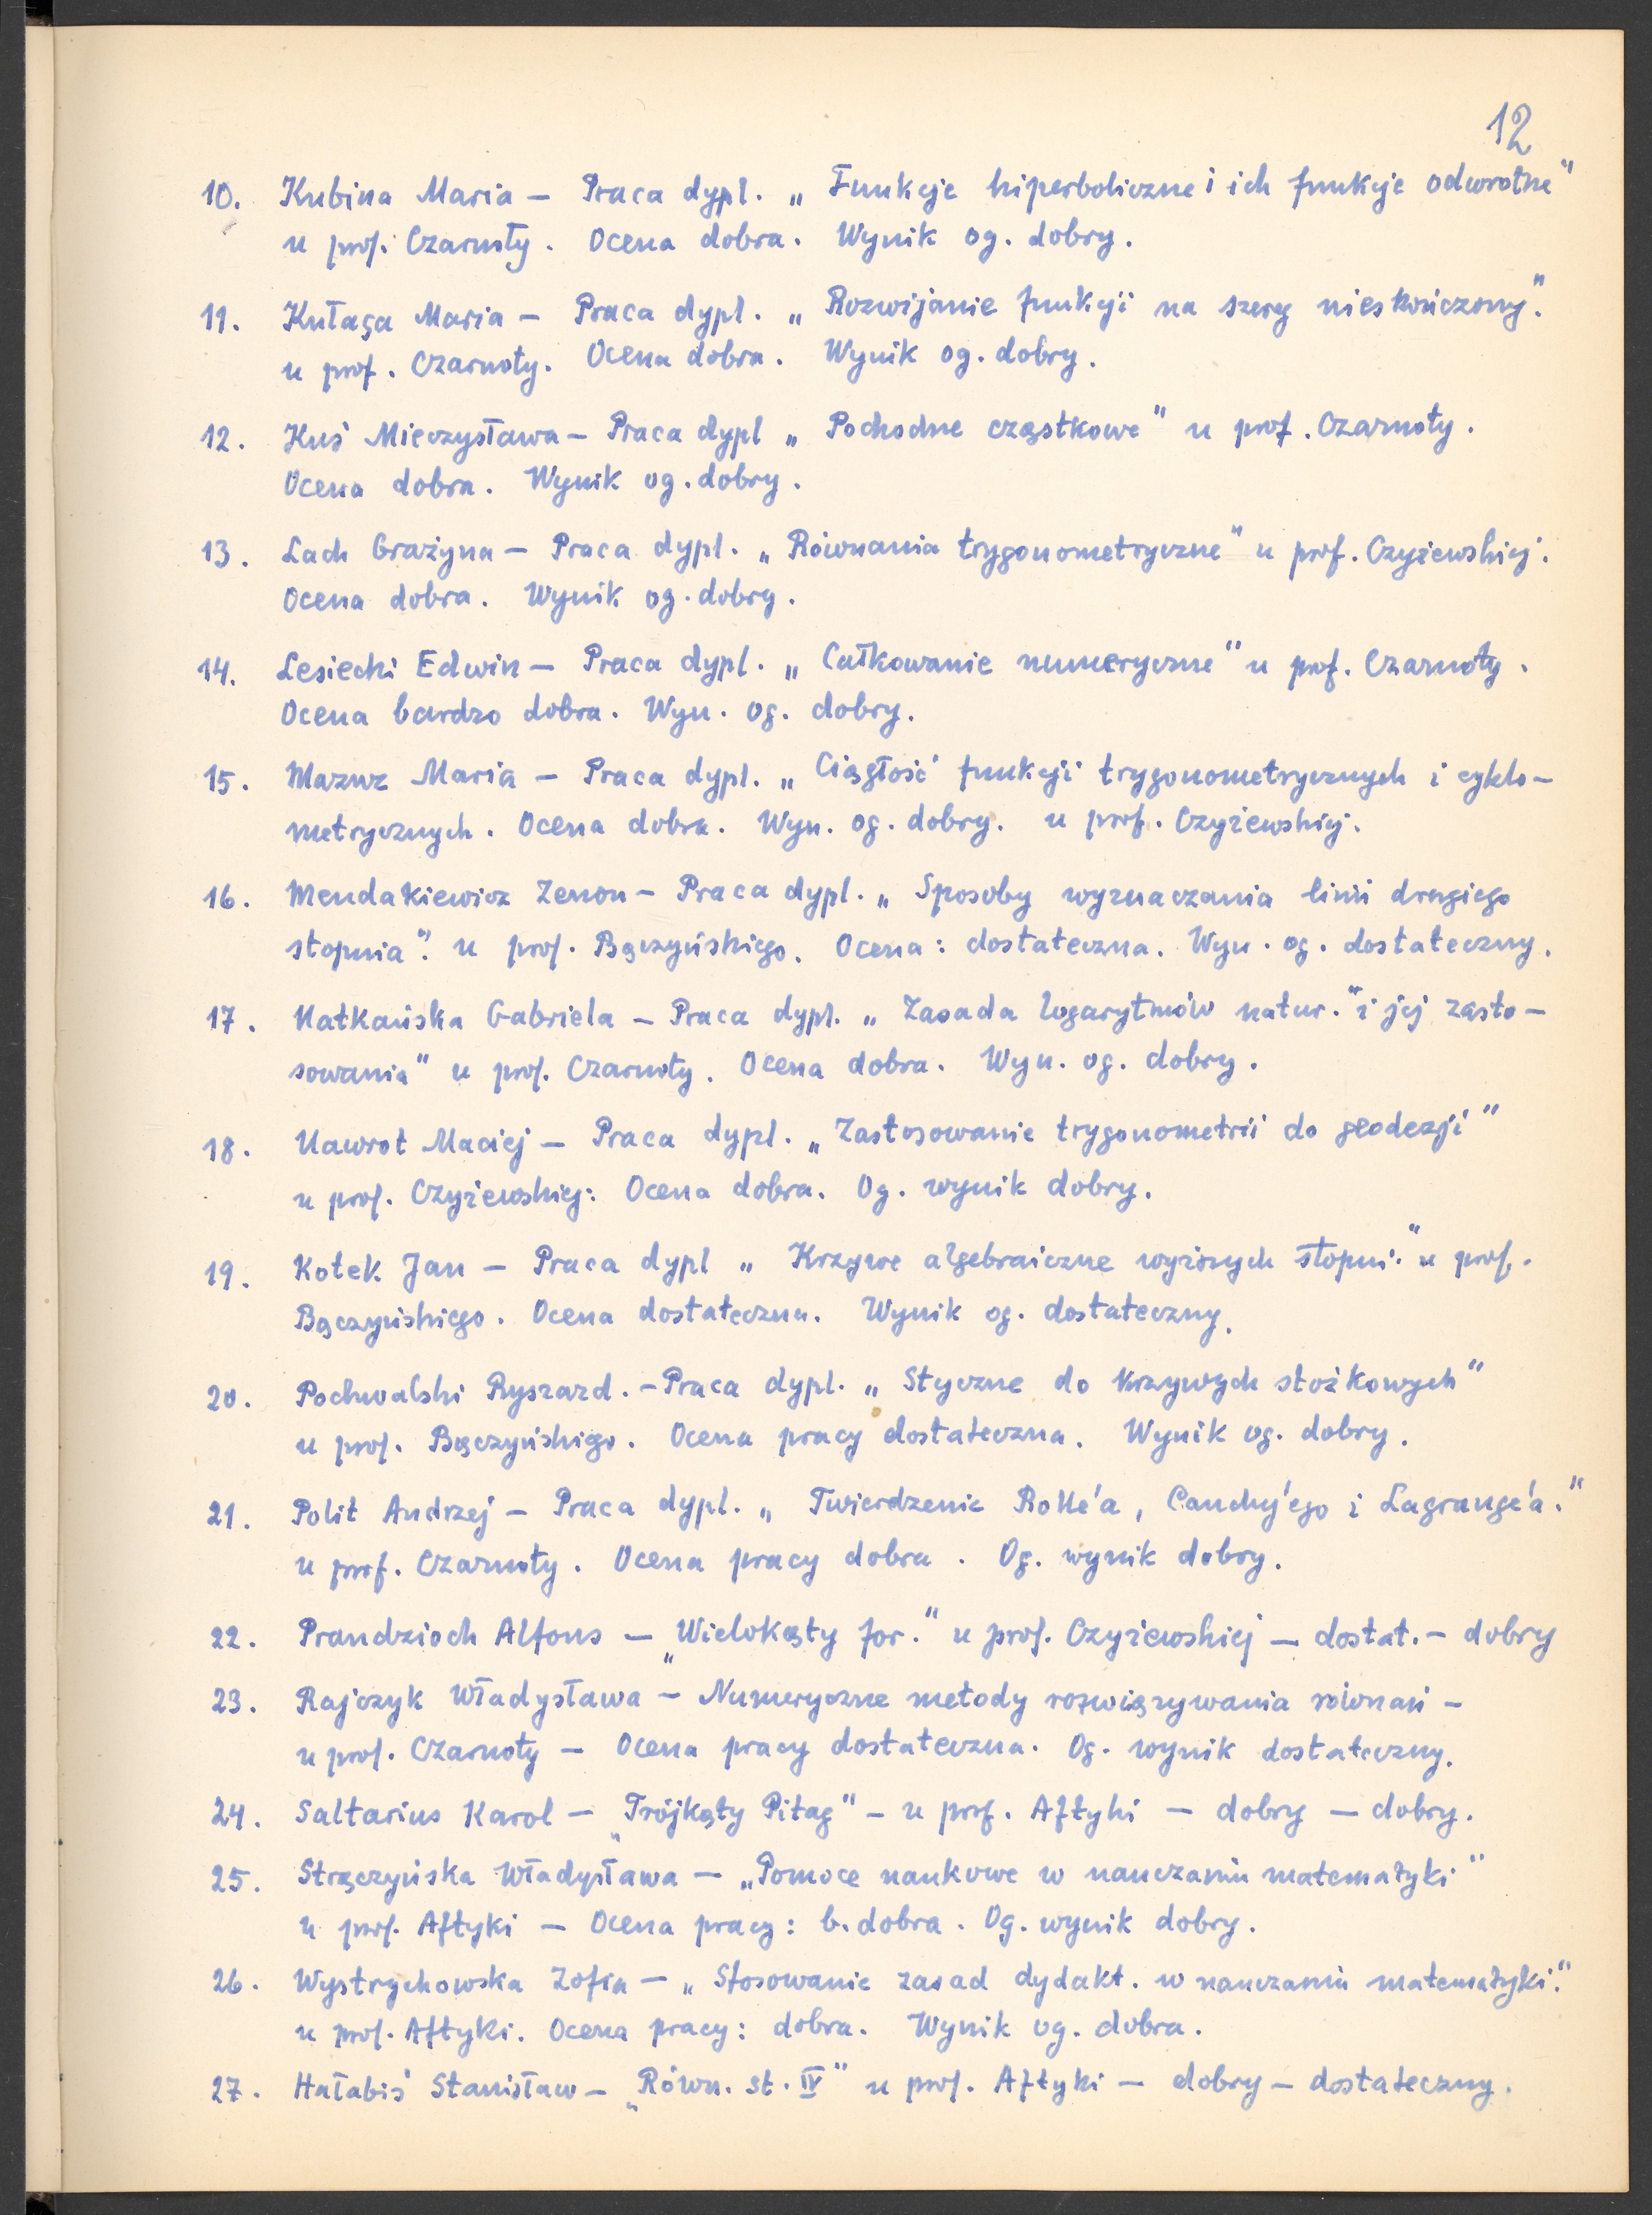 12
10. Kubina Maria – Praca dypl. „Funkcje hiperboliczne i ich funkcje odwrotne"
u prof. Czarnoty. Ocena dobra. Wynik og. dobry.
11. Kułaga Maria – Praca dypl. „Rozwijanie funkcji na szereg nieskończony".
u prof. Czarnoty. Ocena dobra. Wynik og. dobry.
12. Kuś Mieczysława – Praca dypl „Pochodne cząstkowe" u prof. Czarnoty.
Ocena dobra. Wynik og. dobry.
13. Lach Grażyna – Praca dypl. „Równania trygonometryczne" u prof. Czyżewskiej.
Ocena dobra. Wynik og. dobry.
14. Lesiecki Edwin – Praca dypl. „Całkowanie numeryczne" u prof. Czarnoty.
Ocena bardzo dobra. Wyn. og. dobry.
15. Mazur Maria – Praca dypl. „Ciągłość funkcji trygonometrycznych i cyklo-
metrycznych. Ocena dobra. Wyn. og. dobry. u prof. Czyżewskiej.
16. Mendakiewicz Zenon – Praca dypl. „Sposoby wyznaczania linii drugiego
stopnia". u prof. Bączyńskiego. Ocena: dostateczna. Wyn. og. dostateczny.
17. Natkańska Gabriela – Praca dypl. „Zasada logarytmów natur." i jej zasto-
sowania" u prof. Czarnoty. Ocena dobra. Wyn. og. dobry.
18. Nawrot Maciej – Praca dypl. „Zastosowanie trygonometrii do geodezji"
u prof. Czyżewskiej: Ocena dobra. Og. wynik dobry.
19. Kotek Jan – Praca dypl „Krzywe algebraiczne wyższych stopni." u prof.
Bączyńskiego. Ocena dostateczna. Wynik og. dostateczny.
20. Pochwalski Ryszard. – Praca dypl. „Styczne do krzywych stożkowych"
u prof. Bączyńskiego. Ocena pracy dostateczna. Wynik og. dobry.
21. Polit Andrzej – Praca dypl. „Twierdzenie Rolle'a, Cauchy'ego i Lagrange'a."
u prof. Czarnoty. Ocena pracy dobra. Og. wynik dobry.
22. Prandzioch Alfons – „Wielokąty for." u prof. Czyżewskiej – dostat. – dobry
23. Rajczyk Władysława – Numeryczne metody rozwiązywania równań –
u prof. Czarnoty – Ocena pracy dostateczna. Og. wynik dostateczny.
24. Saltarius Karol – „Trójkąty Pitag" – u prof. Aftyki – dobry – dobry.
25. Strączyńska Władysława – „Pomoce naukowe w nauczaniu matematyki"
u prof. Aftyki – Ocena pracy: b. dobra. Og. wynik dobry.
26. Wystrychowska Zofia – „Stosowanie zasad dydakt. w nauczaniu matematyki".
u prof. Aftyki. Ocena pracy: dobra. Wynik og. dobra.
27. Hałabiś Stanisław – „Równ. st. IV" u prof. Aftyki – dobry – dostateczny.